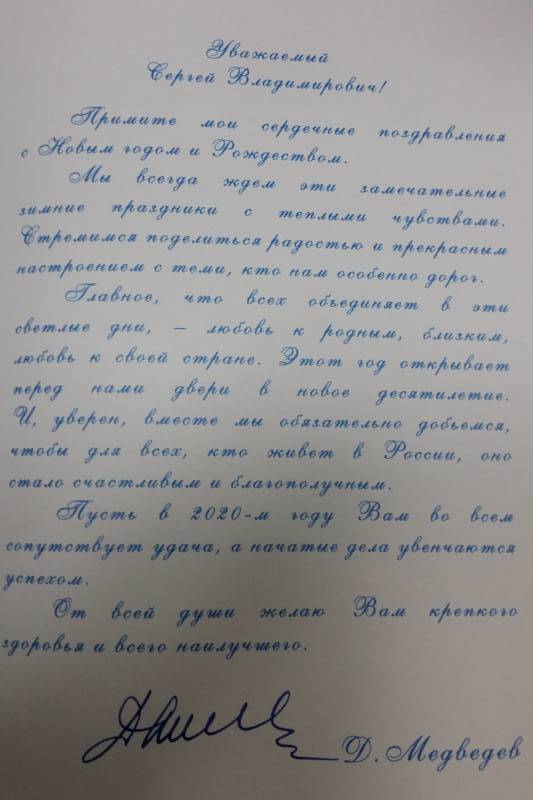 Уважаемый
Сергей Владимирович!
Примите мои сердечные поздравления
с Новым годом и Рождеством.
Мы всегда ждем эти замечательные
зимние праздники с теплыми чувствами.
Стремимся поделиться радостью и прекрасным
настроением с теми, кто нам особенно дорог.
Главное, что всех объединяет в эти
светлые дни, – любовь к родным, близким,
любовь к своей стране. Этот год открывает
перед нами двери в новое десятилетие.
И, уверен, вместе мы обязательно добьемся,
чтобы для всех, кто живет в России, оно
стало счастливым и благополучным.
Пусть в 2020-м году Вам во всем
сопутствует удача, а начатые дела увенчаются
успехом.
От всей души желаю Вам крепкого
здоровья и всего наилучшего.
Д. Медведев